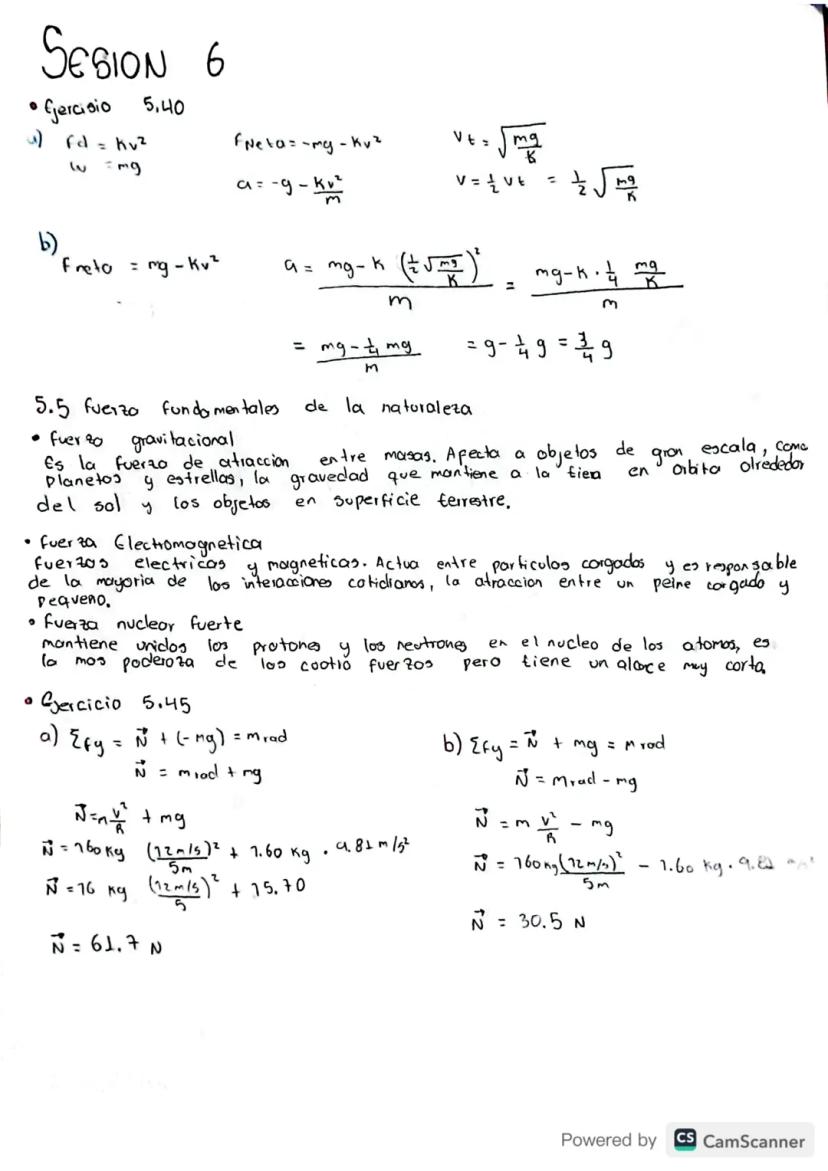 SESION 6
• Ejercisio 5.40
a) Fd = Kv² FNeta = -mg - Kv² Vt = √(mg/K)
W = mg a = -g - Kv²/m V = 1/2 Vt = 1/2 √(mg/K)
b)
Fneta = mg - Kv² a = (mg - K (1/2 √(mg/K))²)/m = (mg - K · 1/4 mg/K)/m
= (mg - 1/4 mg)/m = g - 1/4 g = 3/4 g
5.5 fuerza fundamentales de la naturaleza
• fuerza gravitacional
Es la fuerza de atraccion entre masas. Afecta a objetos de gran escala, como
planetas y estrellas, la gravedad que mantiene a la tiera en orbita olrededor
del sol y los objetos en superficie terrestre.
• fuerza Electromagnetica
fuerzas electricas y magneticas. Actua entre particulas cargadas y es responsable
de la mayoria de las interacciones cotidianas, la atraccion entre un peine cargado y
pequeno.
• fuerza nuclear fuerte
mantiene unidos los protones y los neutrones en el nucleo de los atomos, es
la mas poderoza de las cuatro fuerzas pero tiene un alance muy corta
• Ejercicio 5.45
a) Σfy = N⃗ + (-mg) = m rad b) Σfy = N⃗ + mg = m rad
N⃗ = m rad + mg N⃗ = m rad - mg
N⃗ = m v²/R + mg N⃗ = m v²/R - mg
N⃗ = 160 Kg (12 m/s)²/5m + 1.60 Kg · 9.81 m/s² N⃗ = 160 Kg (12 m/s)²/5m - 1.60 Kg · 9.81
N⃗ = 16 Kg (12 m/s)²/5 + 15.70
N⃗ = 30.5 N
N⃗ = 61.7 N
Powered by CS CamScanner